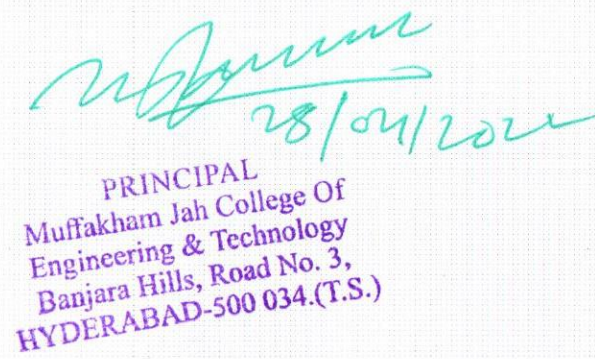 28/04/202
PRINCIPAL
Muffakham Jah College Of
Engineering & Technology
Banjara Hills, Road No. 3,
HYDERABAD-500 034.(T.S.)